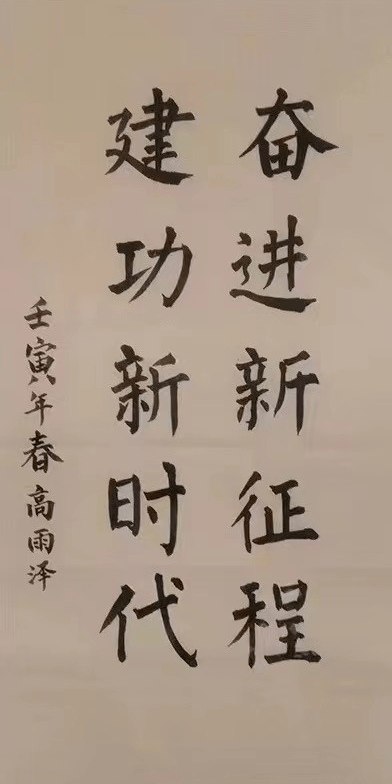 奋进新征程
建功新时代
壬寅年春高雨泽